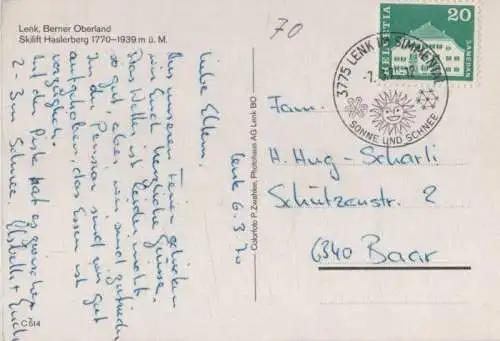 Lenk, Berner Oberland
Skilift Haslerberg 1770–1939 m ü. M.
70
Lenk 6.3.70
Liebe Eltern,
Aus unseren Ferien schicken
wir Euch herzliche Grüsse.
Das Wetter ist leider nicht
so gut, aber wir sind zufrieden
In der Pension sind wir gut
aufgehoben, das Essen ist
vorzüglich.
Auf der Piste hat es zwischen
2 - 3 m Schnee.
C 514
Colorfoto P. Zwahlen, Photohaus AG Lenk BO
HELVETIA
20
SAMEDAN
3775 LENK IM SIMMENTAL
SONNE UND SCHNEE
Fam.
H. Hug-Schärli
Schützenstr. 2
6340 Baar